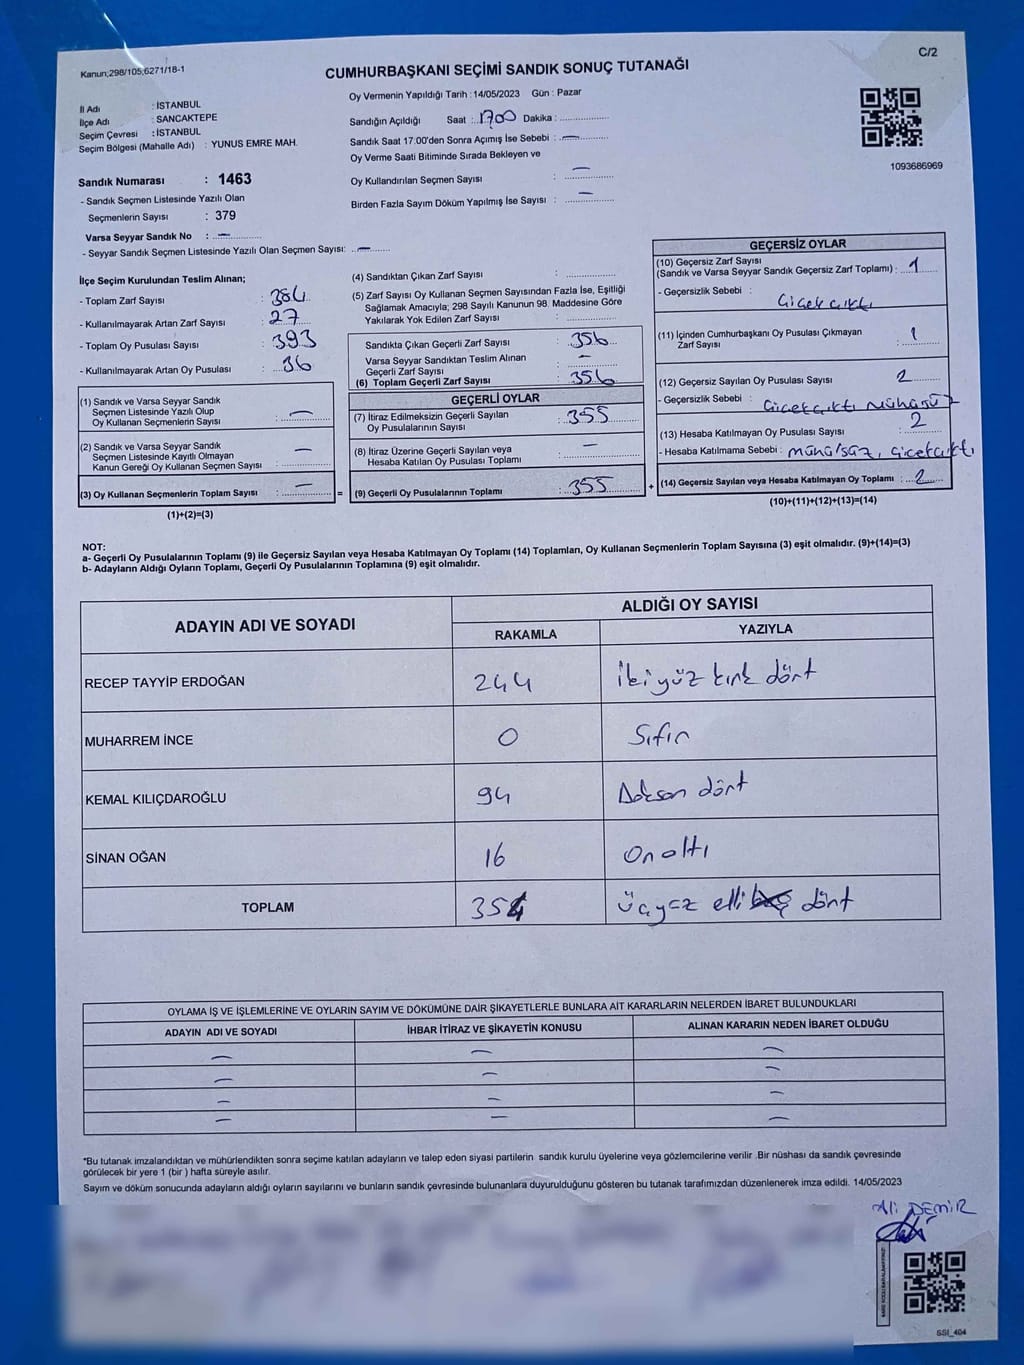 Kanun;298/105;6271/18-1
C/2
CUMHURBAŞKANI SEÇİMİ SANDIK SONUÇ TUTANAĞI
İl Adı : İSTANBUL
İlçe Adı : SANCAKTEPE
Seçim Çevresi : İSTANBUL
Seçim Bölgesi (Mahalle Adı) : YUNUS EMRE MAH.
Sandık Numarası : 1463
- Sandık Seçmen Listesinde Yazılı Olan
Seçmenlerin Sayısı : 379
Varsa Seyyar Sandık No : —
- Seyyar Sandık Seçmen Listesinde Yazılı Olan Seçmen Sayısı: —
Oy Vermenin Yapıldığı Tarih : 14/05/2023 Gün : Pazar
Sandığın Açıldığı Saat : 1700 Dakika :
Sandık Saat 17:00'den Sonra Açımış İse Sebebi : —
Oy Verme Saati Bitiminde Sırada Bekleyen ve
Oy Kullandırılan Seçmen Sayısı : —
Birden Fazla Sayım Döküm Yapılmış İse Sayısı : —
1093686969
İlçe Seçim Kurulundan Teslim Alınan;
- Toplam Zarf Sayısı : 384
- Kullanılmayarak Artan Zarf Sayısı : 27
- Toplam Oy Pusulası Sayısı : 393
- Kullanılmayarak Artan Oy Pusulası : 36
(1) Sandık ve Varsa Seyyar Sandık
Seçmen Listesinde Yazılı Olup
Oy Kullanan Seçmenlerin Sayısı : —
(2) Sandık ve Varsa Seyyar Sandık
Seçmen Listesinde Kayıtlı Olmayan
Kanun Gereği Oy Kullanan Seçmen Sayısı : —
(3) Oy Kullanan Seçmenlerin Toplam Sayısı : —
(1)+(2)=(3)
=
(4) Sandıktan Çıkan Zarf Sayısı :
(5) Zarf Sayısı Oy Kullanan Seçmen Sayısından Fazla İse, Eşitliği
Sağlamak Amacıyla; 298 Sayılı Kanunun 98. Maddesine Göre
Yakılarak Yok Edilen Zarf Sayısı :
Sandıkta Çıkan Geçerli Zarf Sayısı : 356
Varsa Seyyar Sandıktan Teslim Alınan
Geçerli Zarf Sayısı : —
(6) Toplam Geçerli Zarf Sayısı : 356
GEÇERLİ OYLAR
(7) İtiraz Edilmeksizin Geçerli Sayılan
Oy Pusulalarının Sayısı : 355
(8) İtiraz Üzerine Geçerli Sayılan veya
Hesaba Katılan Oy Pusulası Toplamı : —
(9) Geçerli Oy Pusulalarının Toplamı : 355
+
GEÇERSİZ OYLAR
(10) Geçersiz Zarf Sayısı
(Sandık ve Varsa Seyyar Sandık Geçersiz Zarf Toplamı) : 1
- Geçersizlik Sebebi : Çiçek çıktı
(11) İçinden Cumhurbaşkanı Oy Pusulası Çıkmayan
Zarf Sayısı : 1
(12) Geçersiz Sayılan Oy Pusulası Sayısı 2
- Geçersizlik Sebebi : Çiçek çıktı Mühürsüz
(13) Hesaba Katılmayan Oy Pusulası Sayısı : 2
- Hesaba Katılmama Sebebi : çiçekçıktı
(14) Geçersiz Sayılan veya Hesaba Katılmayan Oy Toplamı : 2
(10)+(11)+(12)+(13)=(14)
NOT:
a- Geçerli Oy Pusulalarının Toplamı (9) ile Geçersiz Sayılan veya Hesaba Katılmayan Oy Toplamı (14) Toplamları, Oy Kullanan Seçmenlerin Toplam Sayısına (3) eşit olmalıdır. (9)+(14)=(3)
b- Adayların Aldığı Oyların Toplamı, Geçerli Oy Pusulalarının Toplamına (9) eşit olmalıdır.
ADAYIN ADI VE SOYADI
ALDIĞI OY SAYISI
RAKAMLA YAZIYLA
RECEP TAYYİP ERDOĞAN 244 İkiyüz kırk dört
MUHARREM İNCE 0 Sıfır
KEMAL KILIÇDAROĞLU 94 Doksan dört
SİNAN OĞAN 16 Onaltı
TOPLAM 354 Üçyüz elli dört
OYLAMA İŞ VE İŞLEMLERİNE VE OYLARIN SAYIM VE DÖKÜMÜNE DAİR ŞİKAYETLERLE BUNLARA AİT KARARLARIN NELERDEN İBARET BULUNDUKLARI
ADAYIN ADI VE SOYADI İHBAR İTİRAZ VE ŞİKAYETİN KONUSU ALINAN KARARIN NEDEN İBARET OLDUĞU
— — —
— — —
— — —
— — —
*Bu tutanak imzalandıktan ve mühürlendikten sonra seçime katılan adayların ve talep eden siyasi partilerin sandık kurulu üyelerine veya gözlemcilerine verilir .Bir nüshası da sandık çevresinde
görülecek bir yere 1 (bir ) hafta süreyle asılır.
Sayım ve döküm sonucunda adayların aldığı oyların sayılarını ve bunların sandık çevresinde bulunanlara duyurulduğunu gösteren bu tutanak tarafımızdan düzenlenerek imza edildi. 14/05/2023
Ali DEMİR
SSI_404